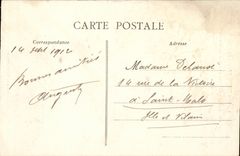 CARTE POSTALE
Correspondance
Adresse
14 1912
Bonnes amitiés
Madame
14 rue de la Victoire
à Saint-Malo
Ille et Vilaine